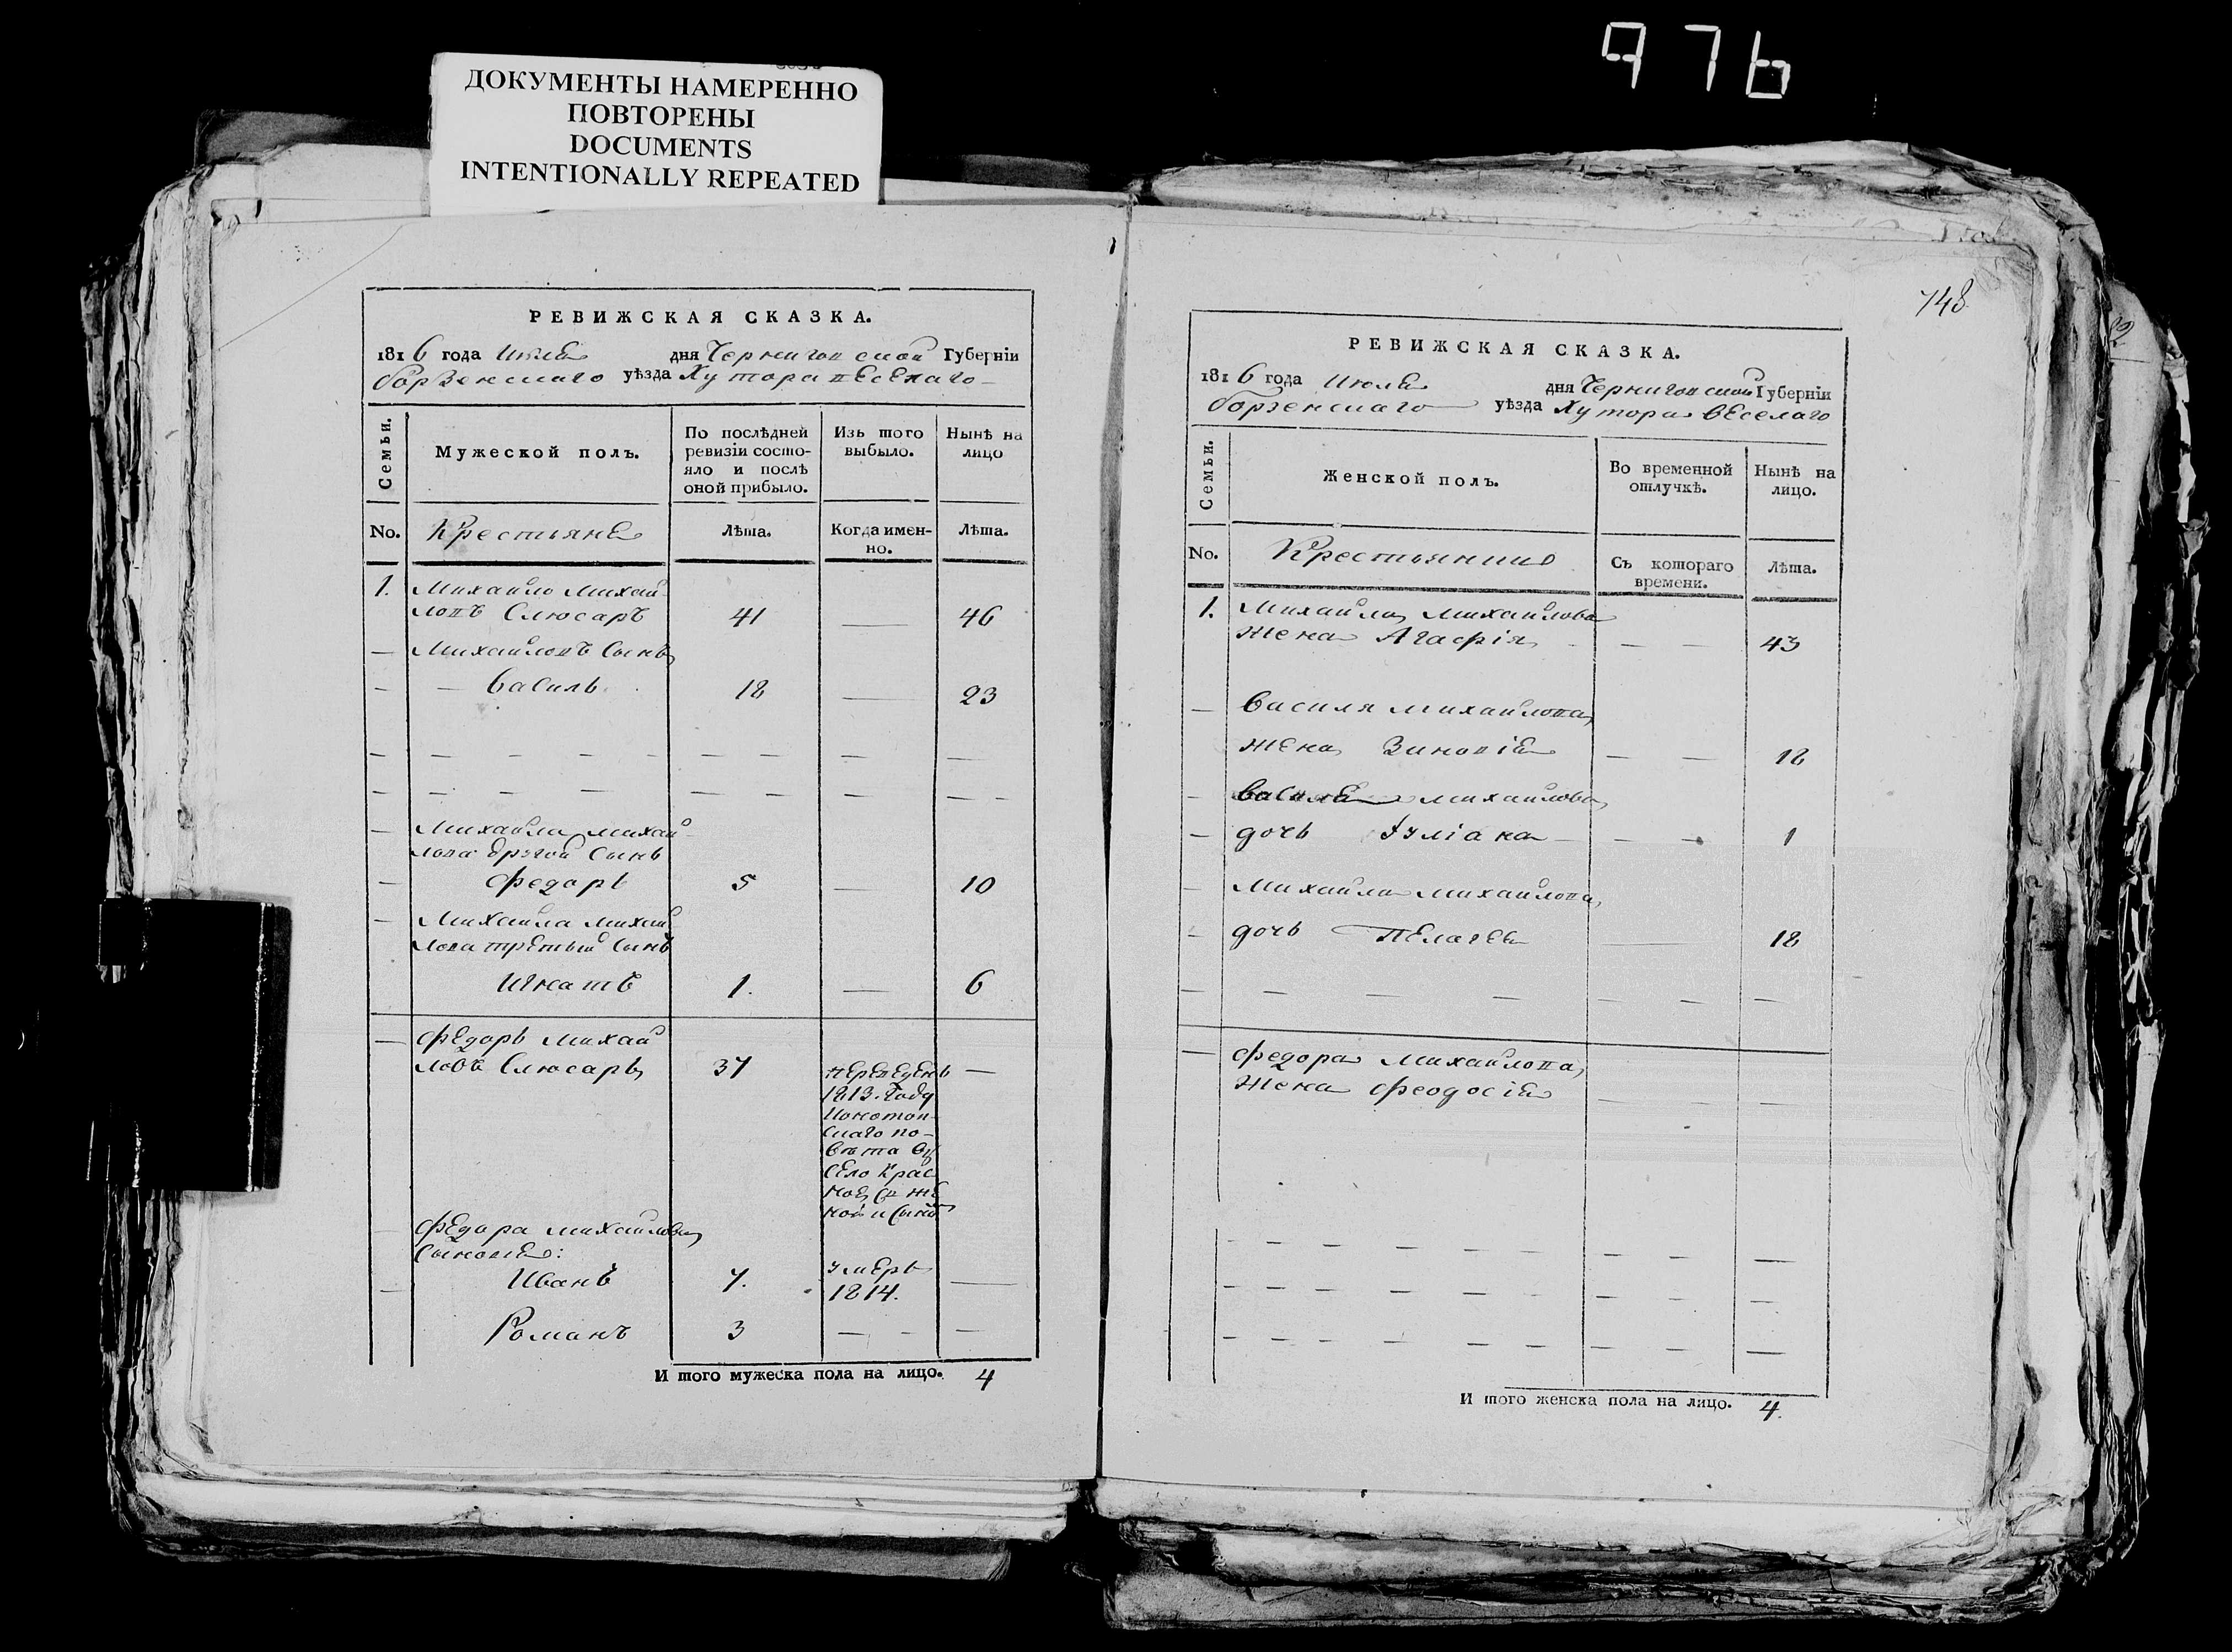 976
ДОКУМЕНТЫ НАМЕРЕННО
ПОВТОРЕНЫ
DOCUMENTS
INTENTIONALLY REPEATED
РЕВИЖСКАЯ СКАЗКА.
1816 года Июля дня Черниговской Губерніи
борзенскаго уѣзда Хутора веселаго
Семьи.
Мужеской полъ.
По послѣдней
ревизіи состо-
яло и послѣ
оной прибыло.
Изъ того
выбыло.
Нынѣ на
лицо
No.
Крестьяне
Лѣта.
Когда имен-
но.
Лѣта.
1. Михайло Михай
ловъ Слюсаръ 41 — 46
— Михайловъ Сынъ
- — Василь 18 — 23
— — — — — — — — —
— — — — — — — — —
— Михайла Михай
лова другой Сынъ
— Федоръ 5 — 10
— Михайла Михай
лова третьій Сынъ
Игнатъ 1. — 6
— Федоръ Михай
ловъ Слюсаръ 37 переведенъ —
1813. Году
Конотоп-
скаго по-
вѣта въ
село Крас
ное, съ же
ной и Сыно
— Федора Михайлова
Сыновья:
— Иванъ 7. умеръ
1814. —
Романъ 3 — - —
И того мужеска пола на лицо. 4
748
РЕВИЖСКАЯ СКАЗКА.
1816 года Июля дня Черниговской Губерніи
борзенскаго уѣзда Хутора веселаго
Семьи.
Женской полъ.
Во временной
отлучкѣ.
Нынѣ на
лицо.
No.
Крестьянки
Съ котораго
времени.
Лѣта.
1. Михайла Михайлова
жена Агафія — — 43
— Василя Михайлова
жена Зиновія — — 18
— Василя Михайлова
— дочь Іуліана — — 1
— Михайла Михайлова
— дочь Пелагея — 18
— — — — — — —
— Федора Михайлова
жена Феодосія — — —
— — — — — — — —
— — — — — — — —
— — — — — — — —
И того женска пола на лицо. 4.